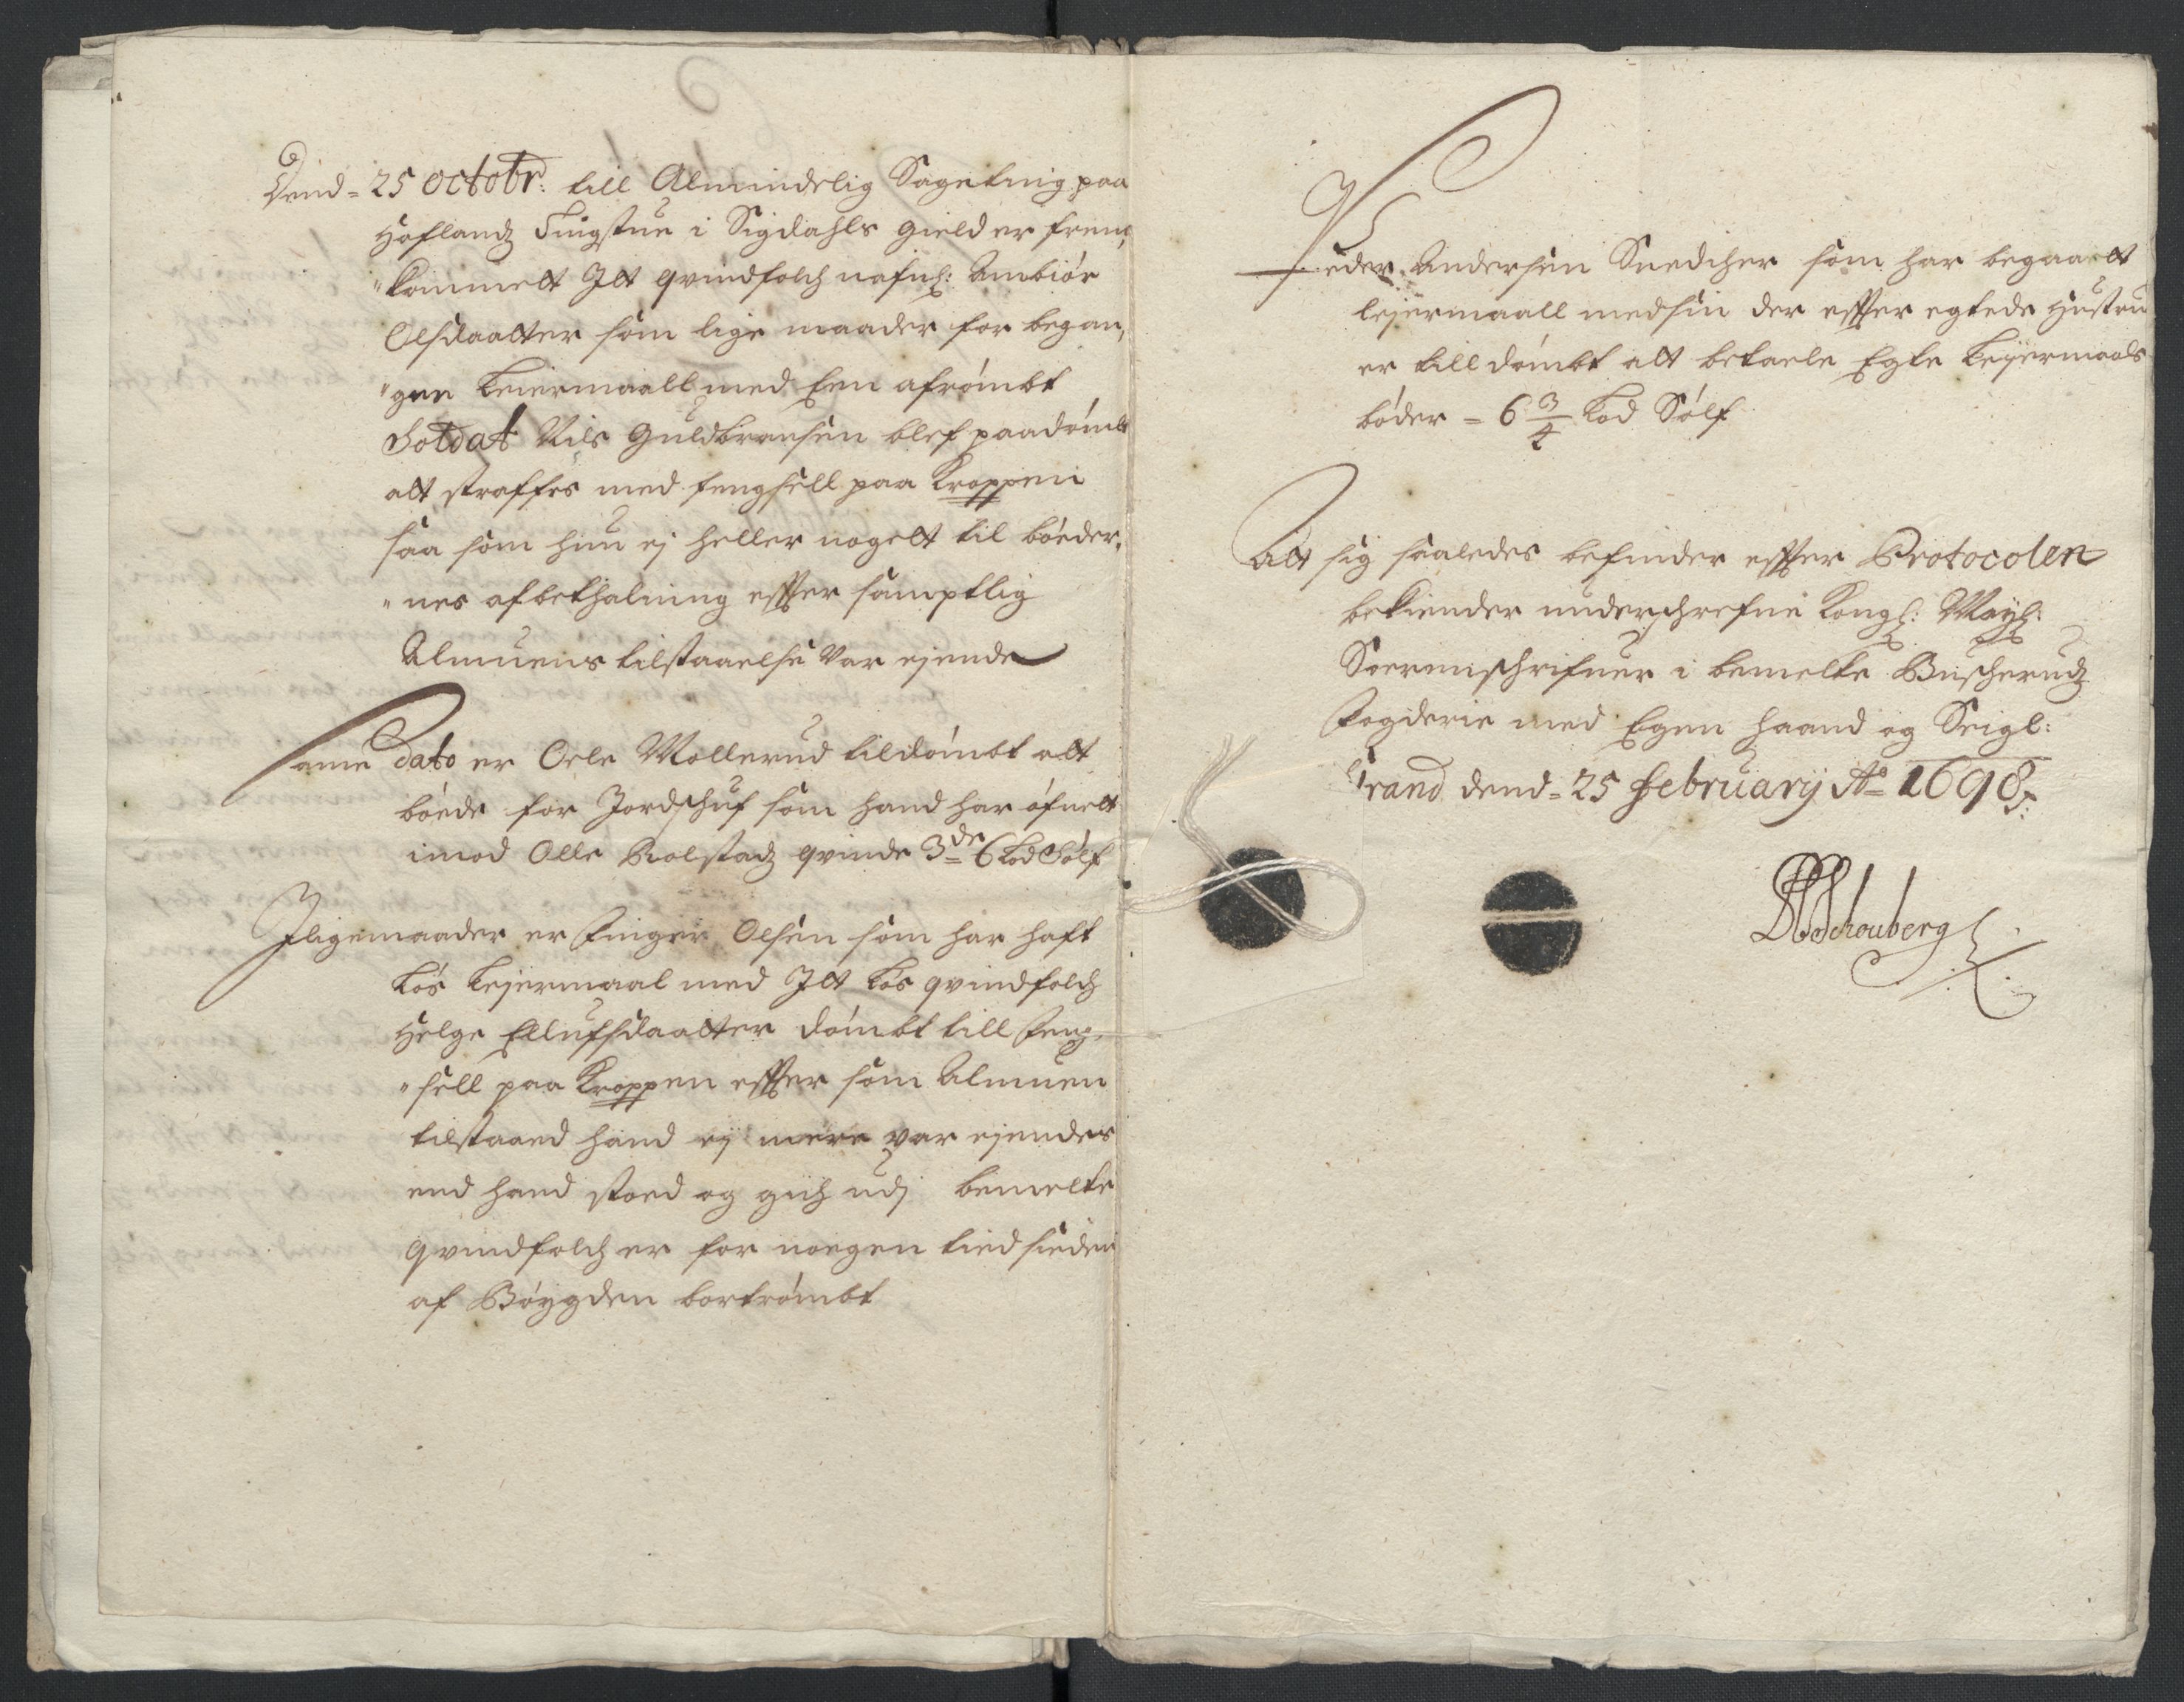 Dend = 25 octobr: till Almindelig Sageting paa
Hoflandz Tingstue i Sigdahls gield er frem,
"kommelt Itt qvindfolch nafnl: Ambiør
Olsdaatter som lige maader for began,
"gen Leiermaall med Een afrømbt
Soldat Nils Guldbransen blef paadømbt
att straffes med fengsell paa Kroppen
saa som hun ej heller nogelt til bøeder,
"nes afbethalning effter samptlig
Almuens tilstaaelse var ejende
Same dato er Oele Mollerud tildømbt att
bøede for Jordschuf som hand har øfuelt
imod Olle Rolstadz qvinde 3de 6 Lod Sølf
Iligemaader er Finger Olsen som har haft
Løs Leiermaal med Itt Løs qvindfolch
Helge Ellufsdaatter dømbt till Feng,
"sell paa Kroppen effter som Almuen
tilstaaed hand ej mere var ejendes
end hand stoed og gich udj bemelte
qvindfolch er for noegen tied sieden
af Bøygden bortrømbt
Peder Andersen Snedcher som har begaaelt
leiermaall med sin der effter egtede Hustru
er till dømbt att betaele Egte Leyermaals
bøder = 6 3/4 Lod Sølf
Att sig saaledes befinder effter Protocolen
bekiender underschrefne Kongl: Mayts:
Soerenschrifuer i bemelte Buscheruds
Fogderie med Egen haand og Seigl:
Strand dend = 25 February Ao 1698
Schouberg